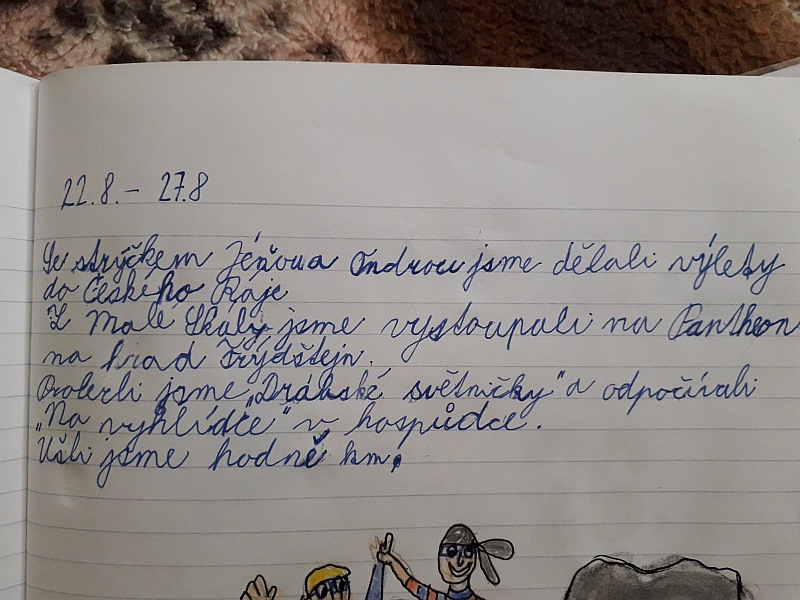 22.8.- 27.8
Se strýčkem a Ondrou jsme dělali výlety
do Českého Ráje
Z Malé Skály jsme vystoupali na Pantheon
na hrad Frýdštejn.
Prolezli jsme „Drábské světničky" a odpočívali
„Na vyhlídce" v hospůdce.
Ušli jsme hodně km.